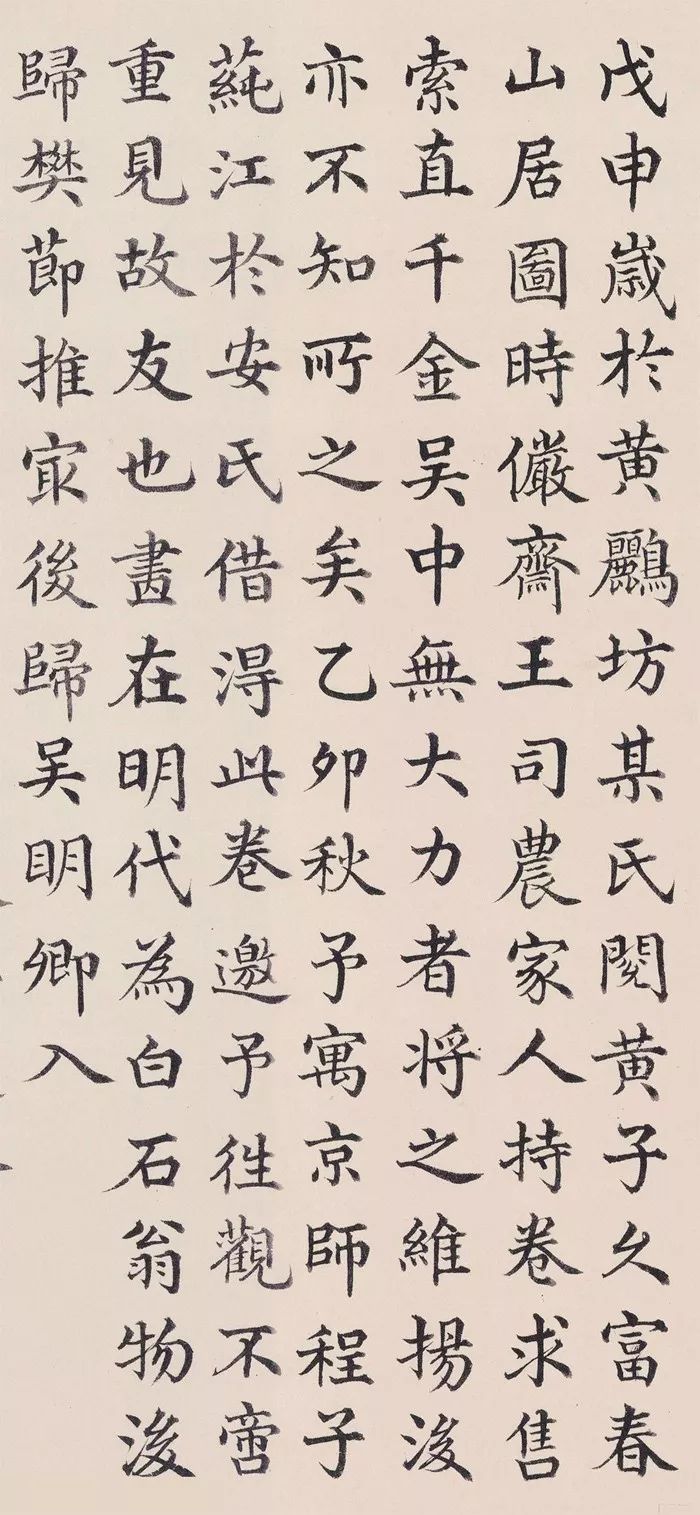 戊申歲於黃鸝坊某氏閱黃子久富春
山居圖時儼齋王司農家人持卷求售
索直千金吳中無大力者将之維揚後
亦不知所之矣乙卯秋予寓京師程子
蒓江於安氏借得此卷邀予往觀不啻
重見故友也畫在明代為白石翁物後
歸樊節推冣後歸吴明卿入